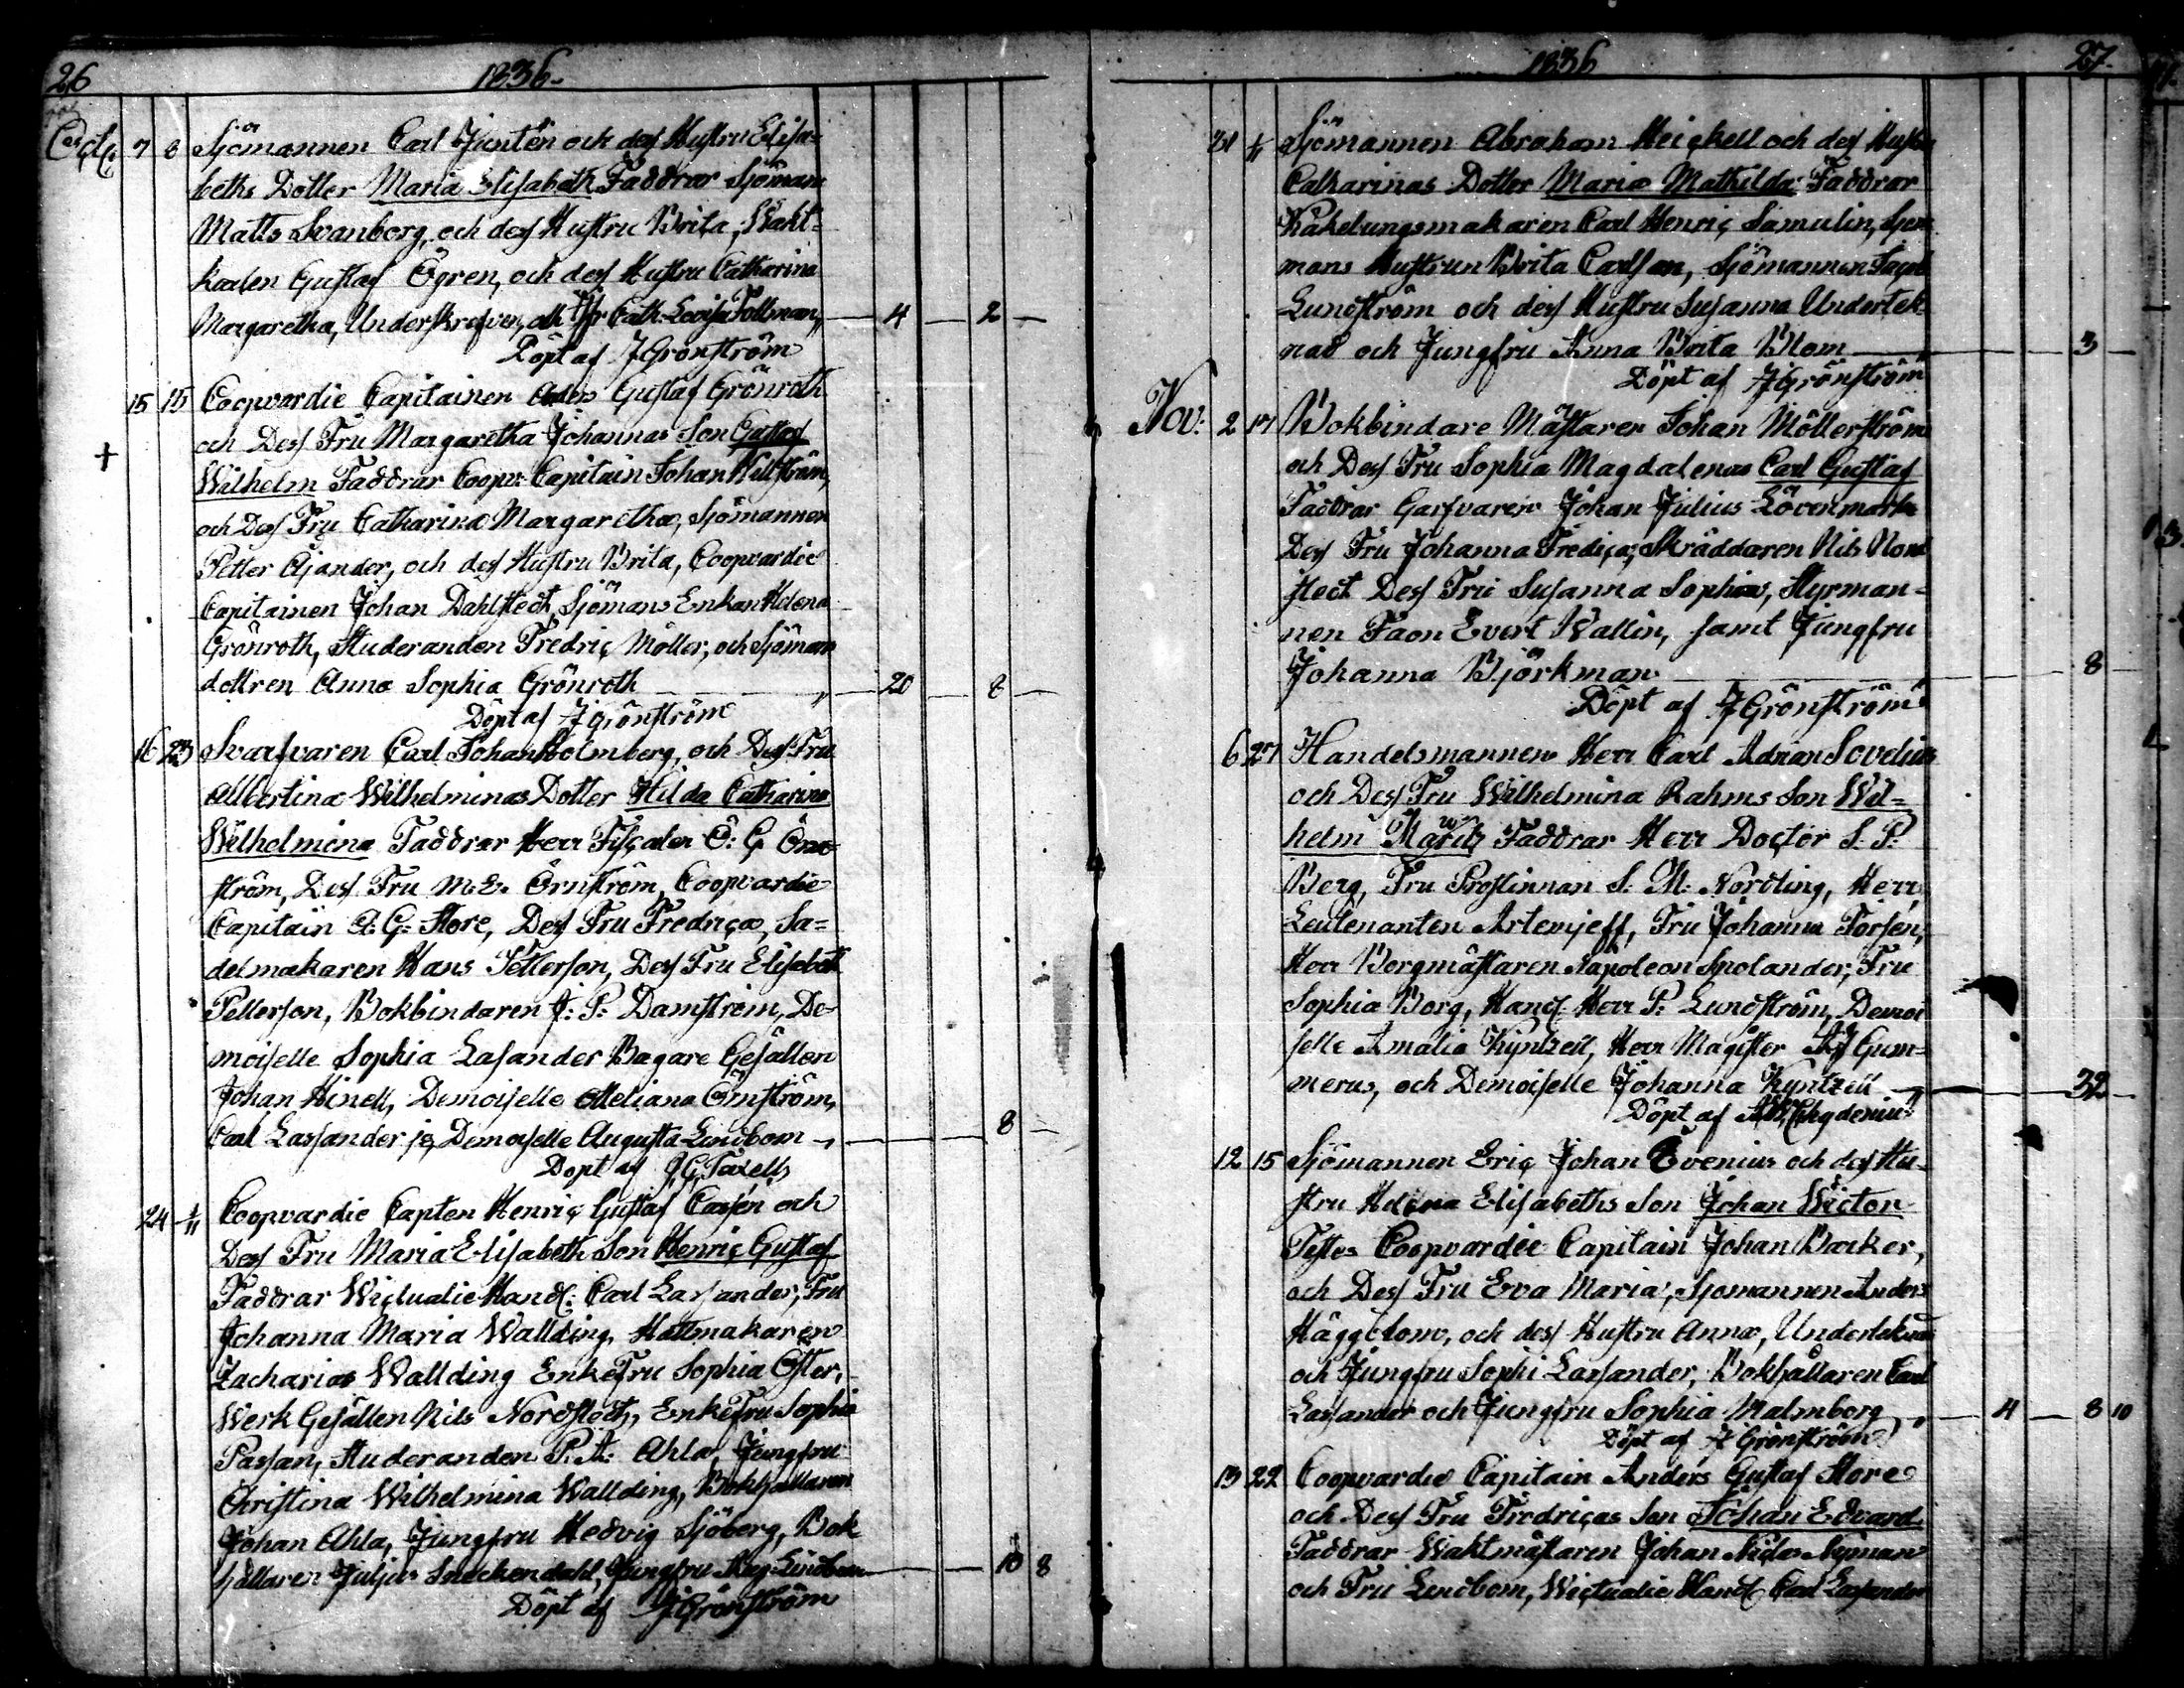 26 1836.
Octr: 7 8 Sjömannen Carl Juntén och dess Hustru Elisa=
beths Dotter Maria Elisabeth Faddrar Sjöman
Matts Svanborg, och dess Hustru Brita, Wakt=
karlen Gustaf Ögren, och dess Hustru Catharina
Margaretha, Underskrefven, och Jfr Cath. Lovisa Tollman „ 4 2
Döpt af J Grönström
15 15 Coopvardie Capitainen Anders Gustaf Grönroth
och Dess Fru Margaretha Johannas Son Gustaf
+ Wilhelm Faddrar Coopv: Capitain Johan Wellström,
och Dess Fru Catharina Margaretha, Sjömannen
Petter Ajander, och dess Hustru Brita, Coopvardie
Capitainen Johan Dahlstedt, Sjömans Enkan Helena
Grönroth, Studeranden Fredric Möller, och Sjömans
dottren Anna Sophia Grönroth „ 20 8
Döpt af J Grönström
16 23 Svarfvaren Carl Johan Holmberg, och Dess Fru
Albertina Wilhelminas Dotter Hilda Catharina
Wilhelmina Faddrar Herr Fiscalen O: G Örn
ström, Dess Fru M. E. Örnström, Coopvardie
Capitain A: G: Store, Dess Fru Fredrica, Sa=
delmakaren Hans Petterson, Dess Fru Elisabeth
Petterson, Bokbindaren J: P: Damström, De=
moiselle Sophia Lasander Bagare Gesällen
Johan Hinell, Demoiselle Meliana Örnström,
Carl Lassander, Demoiselle Augusta Lindbom „ 8
Döpt af J. G. Taxell
24 1/11 Coopvardie Capten Henric Gustaf Casén och
Dess Fru Maria Elisabeth Son Henric Gustaf
Faddrar Wictualie Handl: Carl Lassander, Fru
Johanna Maria Wallding, Hattmakaren
Zacharias Wallding Enkefru Sophia Öster,
Werk Gesällen Nils Nordstedt, Enkefru Sophia
Passan, Studeranden P. A: Ahla, Jungfru
Christina Wilhelmina Wallding, Bokhållaren
Johan Ahla, Jungfru Hedvig Sjöberg, Bok
hållaren Julius Sneckendahl, Jungfru Lindbom 10 8
Döpt af J Grönström
1836 27.
31 1/11 Sjömannen Abraham Heickell och dess Hustru
Catharinas Dotter Maria Mathilda Faddrar
Kakelungsmakaren Carl Henric Samulin, Sjö
mans Hustrun Brita Carlson, Sjömannen Jacob
Lundström och dess Hustru Susanna Undertek
nad och Jungfru Anna Brita Blom „ 3
Döpt af J Grönström
Nov: 2 17 Bokbindare Mästaren Johan Möllerström
och Dess Fru Sophia Magdalenas Carl Gustaf
Faddrar Garfvaren Johan Julius Lövenmark
Dess Fru Johanna Fredica, Skräddaren Nils Nord
stedt Dess Fru Susanna Sophia, Styrman=
nen Faon Evert Wallin, samt Jungfru
Johanna Björkman 8
Döpt af J Grönström
6 27 Handelsmannen Herr Carl Adrian Sovelius
och Dess Fru Wilhelmina Rahms Son Wil=
helm Mauritz Faddrar Herr Doctor S. P.
Berg, Fru Prostinnan S. M. Nordling, Herr
Leutenanten Artemjeff, Fru Johanna Forsén,
Herr Borgmästaren Napoleon Snolander, Fru
Sophia Borg, Handl. Herr P: Lundström, Demoi
selle Amalia Kyntzell, Herr Magister Gum=
merus, och Demoiselle Johanna Kyntzell „ 32
Döpt af Chydenius
12 15 Sjömannen Eric Johan Evenius och dess Hu=
stru Helena Elisabeths Son Johan Wictor
Testes Coopvardie Capitain Johan Backer,
och Dess Fru Eva Maria, Sjömannen Anders
Häggblom, och dess Hustru Anna, Undertecknad
och Jungfru Sophi Lassander, Bokhållaren Carl
Lassander och Jungfru Sophia Malmborg „ 4 8 10
Döpt af J Grönström
13 22 Coopvardie Capitain Anders Gustaf Store
och Dess Fru Fredricas Son Johan Edvard
Faddrar Waktmästaren Johan Nyman
och Fru Lindbom, Wictualie Handl Carl Lassander